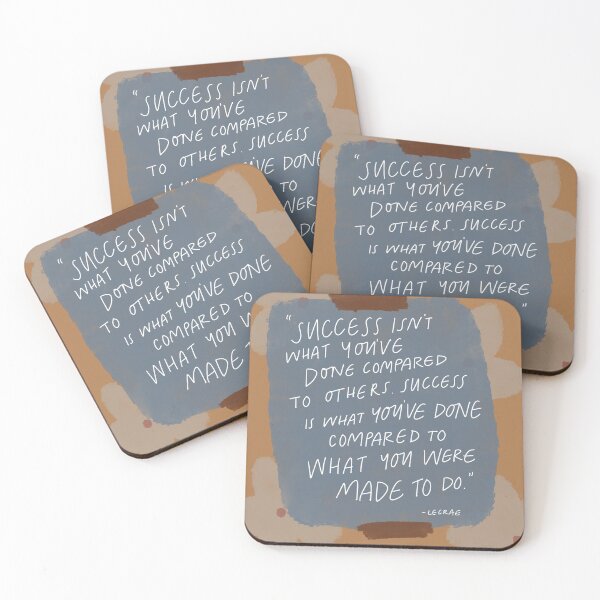 “SUCCESS ISN'T
WHAT YOU'VE
DONE COMPARED
TO OTHERS. SUCCESS
IS
DONE
TO
“SUCCESS ISN'T
WHAT YOU'VE
DONE COMPARED
TO OTHERS. SUCCESS
IS WHAT YOU'VE DONE
COMPARED TO
WHAT YOU WERE
“SUCCESS ISN'T
WHAT YOU'VE
DONE COMPARED
TO OTHERS. SUCCESS
IS WHAT YOU'VE DONE
COMPARED TO
WHAT YOU
MADE
“SUCCESS ISN'T
WHAT YOU'VE
DONE COMPARED
TO OTHERS. SUCCESS
IS WHAT YOU'VE DONE
COMPARED TO
WHAT YOU WERE
MADE TO DO.”
-LECRAE